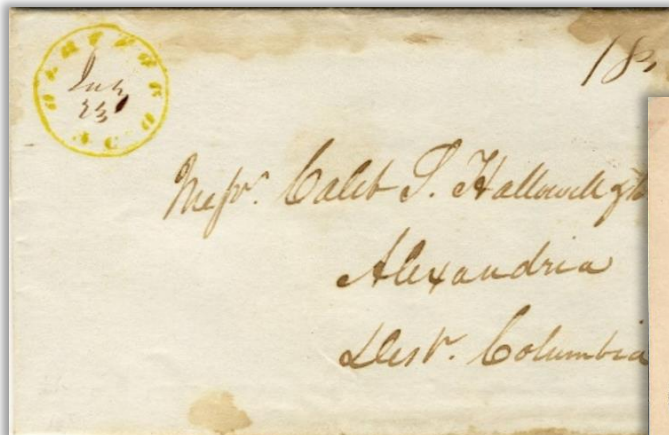 18¾
July
23
Messrs. Caleb S. Hallowell &
Alexandria
Dist. Columbia